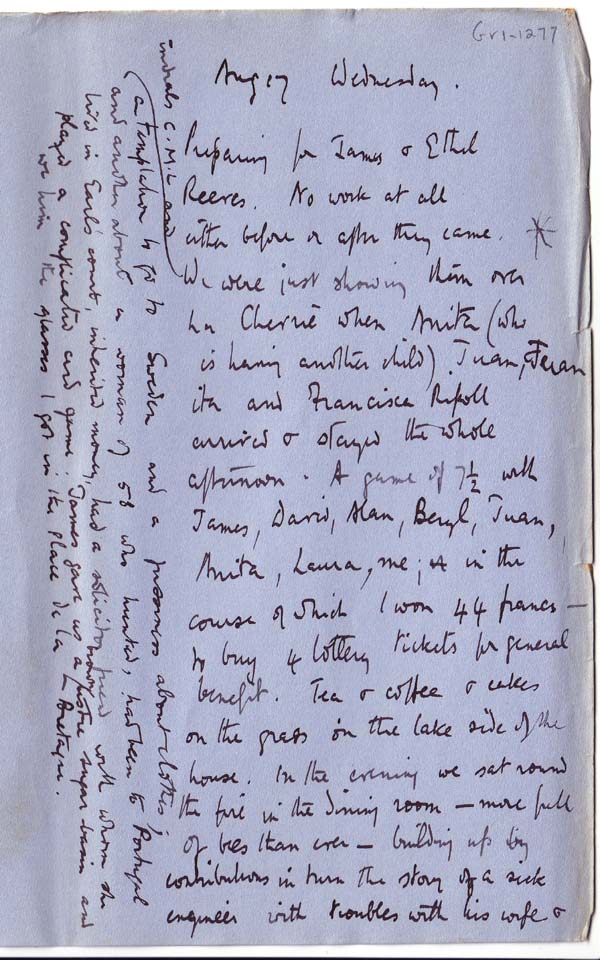 Gr1-1277
Aug 17 Wednesday.
Preparing for James & Ethel
Reeves. No work at all
either before or after they came.
We were just showing them over
La Chevrie when Anita (who
is having another child), Juan, Juan
ita and Francisca Ripoll
arrived & stayed the whole
afternoon. A game of 7½ with
James, David, Alan, Beryl, Juan,
Anita, Laura, me; in the
course of which I won 44 francs —
to buy 4 lottery tickets for general
benefit. Tea & coffee & cakes
on the grass on the lake side of the
house. In the evening we sat round
the fire in the dining room — more full
of bees than ever — building up by
contributions in turn the story of a sick
engineer with troubles with his wife &
initials C. M. L. and
(a temptation to go to Sweden and a about clothes;
and another about a woman of 58 who hunted, had been to Portugal
liv'd in Earl's court, inherited money, had a solicitor friend with whom she
played a complicated card game. James gave us a lustre sugar basin and
we him the glasses I got in the Place de la Bretagne.